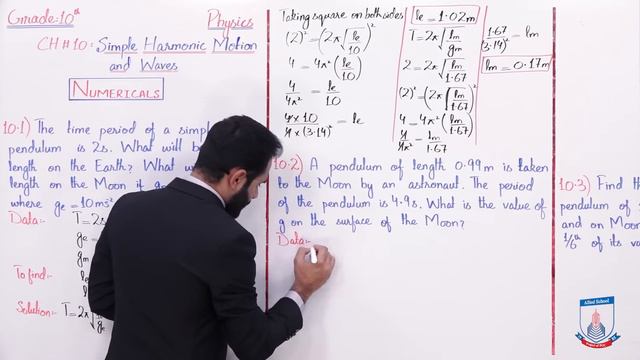 Grade:-10th Physics
CH # 10: Simple Harmonic Motion
and Waves
NUMERICALS
10.1) The time period of a simple
pendulum is 2s. What will be
length on the Earth? What
length on the Moon if
where ge = 10ms²
Data:- T = 2s
ge =
gm
To find:-
Solution:- T = 2π
Taking square on both sides
(2)² = (2π√le/10)²
4 = 4π² (le/10)
4/4π² = le/10
4 × 10/4 × (3.14)² = le
le = 1.02m
T = 2π√lm/gm
2 = 2π√lm/1.67
(2)² = (2π√lm/1.67)²
4 = 4π² (lm/1.67)
4/4π² = lm/1.67
1.67/(3.14)² = lm
lm = 0.17m
10.2) A pendulum of length 0.99m is taken
to the Moon by an astronaut. The period
of the pendulum is 4.9s. What is the value of
g on the surface of the Moon?
Data:-
10.3) Find th
pendulum of
and on Moon
1/6th of its va
Allied School